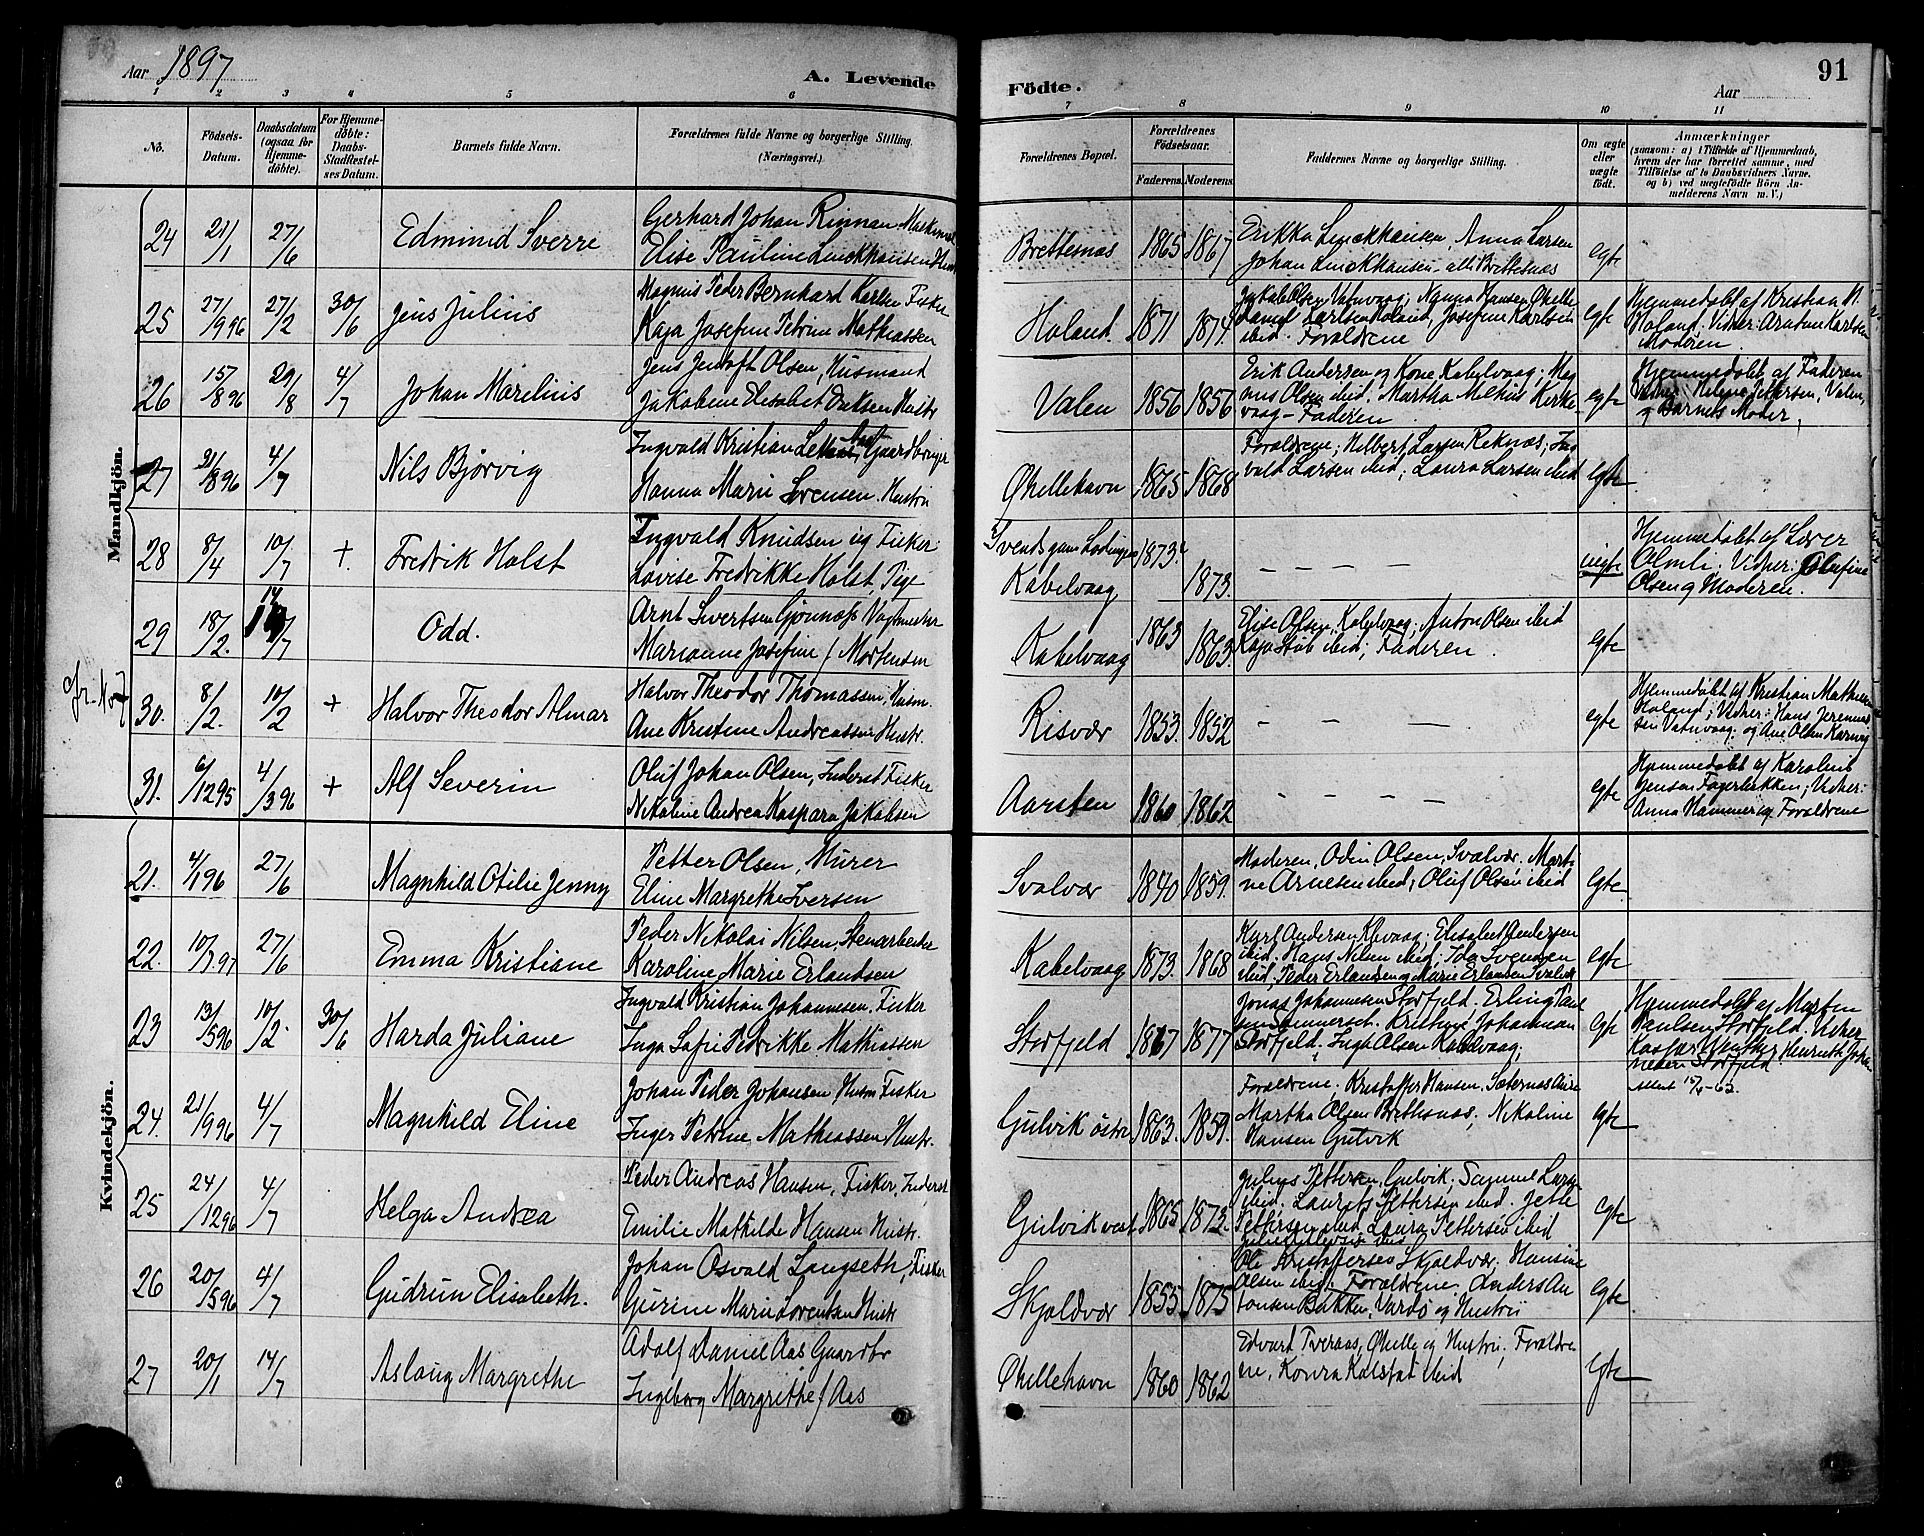 Aar 1897
A. Levende
Födte.
91
Aar
1 2 3 4 5 6 7 8 9 10 11
No.
Födsels-Datum.
Daabsdatum (ogsaa for Hjemmedöbte).
For Hjemmedöbte: Daabs-Stadfæstelses Datum.
Barnets fulde Navn.
Forældrenes fulde Navne og borgerlige Stilling. (Næringsvei.)
Forældrenes Bopæl.
Forældrenes Födselsaar.
Faderens. Moderens.
Faddernes Navne og borgerlige Stilling.
Om ægte eller uægte födt.
Anmærkninger
(saasom: a) i Tilfælde af Hjemmedaab,
hvem der har forrettet samme, med
Tilföielse af to Daabsvidners Navne,
og b) ved uægtefödte Börn An-
melderens Navn m. V.)
Mandkjön.
24 21/1 27/6 Edmund Sverre
Gerhard Johan Rinnan
Elise Pauline Linckhausen Hustr
Brettesnæs 1865 1867
Erikka Linckhausen, Anna Larsen
Johan Linckhausen - alle Brettesnæs
egte
25 27/9 96 27/2 30/6 Jens Julius
Magnus Peder Bernhard Karlsen Fisker
Kaja Josefine Petrine Mathiassen
Holand. 1871 1874.
Jakob Olsen Vatnvaag; Nanna Hansen Øhelle
Daniel Karlsen Holand, Josefine Karlsen
ibid. Forældrene
egte
Hjemmedøbt af Kristian N.
Holand. Vidner: Karlsen
Moderen.
26 15/8 96 29/8 4/7 Johan Marelius
Jens Jentoft Olsen, Husmand
Jakobine Elisabet Eriksen Hustr
Valen 1856 1856
Erik Andersen og Kone Kabelvaag; Mag
nus Olsen ibid. Martha Melhus Kirke
vaag - Faderen
egte
Hjemmedøbt af Faderen
Vidner Helene Pettersen, Valen,
og Barnets Moder,
27 31/8 96 4/7 Nils Bjørvig
Ingvald Kristian Gaardbruger
Hanna Marie Sørensen. Hustru
Øhellehavn 1865 1868
Forældrene; Helbert Larsen Reknæs; Ing
vald Larsen ibid; Laura Larsen ibid
egte
28 8/4 10/7 + Fredrik Holst
Ingvald Knudsen ug Fisker
Lovise Fredrikke Holst, Pige
Kabelvaag 1873. 1873.
uegte
Hjemmedøbt af Lærer
Olmli. Vidner: Olufine
Olsen og Moderen.
29 18/2. 14/7 Odd.
Arnt Sivertsen Gjønnæss Vagtmester
Marianne Josefine f Mortensen
Kabelvaag 1863 1863.
Elise Olsen, Kabelvaag; Anton Olsen ibid
Kaja Støb ibid; Faderen.
egte
30. 8/2. 10/2 + Halvor Theodor Almar
Halvor Theodor Thomassen, Husm.
Ane Kristine Andreassen Hustr.
Risvær 1853. 1852
egte
Hjemmedøbt af Kristian Mathisen
Holand; Vidner: Hans Jeremias
sen Vatnvaag. og Ane Olsen
31. 6/12 95 4/3 96 + Alf Severin
Oluf Johan Olsen, Inderst Fisker
Nikoline Andrea Kaspara Jakobsen
Aarsten 1860 1862
egte
Hjemmedøbt af Karolius
Jensen Fagerbækken; Vidner:
Anna Hammer og Forældrene
Kvindekjön.
21. 4/1 96 27/6 Magnhild Otilie Jenny
Petter Olsen, Murer
Eline Margrethe Iversen
Svolvær 1840 1859.
Moderen, Odin Olsen, Svolvær. Marti
ne Arnesen ibid; Oluf Olsen ibid
egte
22. 10/1 97 27/6 Emma Kristiane
Peder Nikolai Nilsen, Stenarbeider
Karoline Marie Erlandsen
Kabelvaag 1873. 1868
Andersen Kbvaag; Elisabeth Andersen
ibid. Hans Nilsen ibid; Ida Svendsen
ibid; Peder Erlandsen og Marie Erlandsen Svolvær
egte
23 13/5 96 10/2. 30/6 Harda Juliane
Ingvald Kristian Johannesen. Fisker
Inga Sofie Pedrikke Mathiassen
Storfjeld 1867 1877
Jonas Johannesen Storfjeld. Erling Paul
sen. Kristine Johannsen
Storfjeld; Inga Olsen Kabelvaag;
egte
Hjemmedøbt af Morten
Paulsen Storfjeld. Vidner
Kaspar Henrette Johan
nesen Storfjeld.
24. 21/9 96 4/7 Magnhild Eline
Johan Peder Johansen Husm Fisker
Inger Petrine Mathiassen Hustr.
Gulvik østre 1863. 1859.
Forældrene. Kristoffer Hansen. Sæternæs
Martha Olsen Brettesnæs; Nikoline
Hansen Gulvik
egte
25 24/12 96 4/7 Helga Andrea
Peder Andreas Hansen, Fisker, Inderst
Emilie Mathilde Hansen Hustr.
Gulvik vest. 1865 1873.
Julius Pettersen, Gulvik; Samuel Lars
ibid; Laurats Pettersen ibid. Jette
Pettersen ibid Laura Pettersen ibid
egte
26 20/5 96 4/7 Gudrun Elisabeth.
Johan Osvald Langseth, Fisker
Gurine Marie Lorentsen Hustr
Skjoldvær 1855 1875
Ole Kristoffersen Skjoldvær; Hansine
Olsen ibid; Forældrene. Anders An
tonsen Bakken, Vardø og Hustru
egte
27 20/1 14/7 Aslaug Margrethe
Adolf Daniel Aas Gaardbr
Ingeborg Margrethe f Aas
Øhellehavn 1860 1862
Edvart Tveraas, Øhelle og Hustru; Forældre
ne, Konra Kalstad ibid
egte